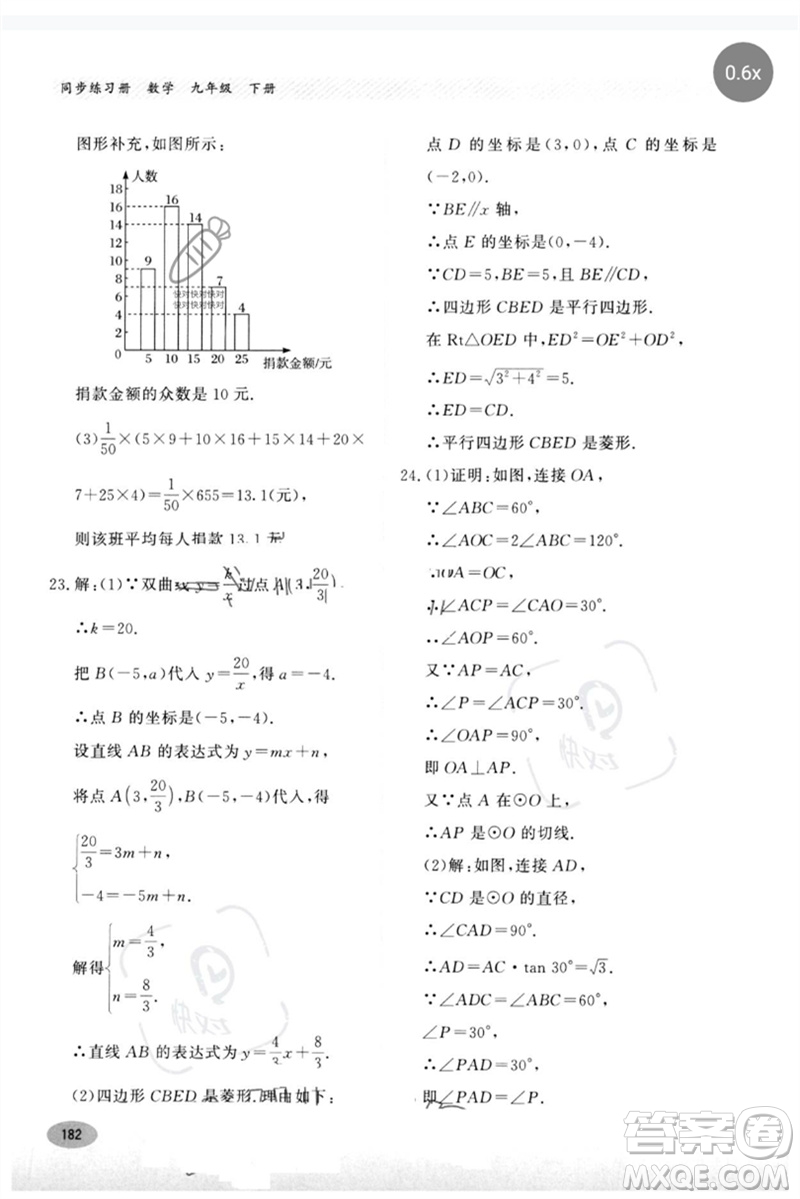 0.6x
同步练习册 数学 九年级 下册
图形补充,如图所示:
人数
18
16
14
12
10
8
6
4
2
0
9
16
14
7
4
5 10 15 20 25
捐款金额/元
快对快对快对快对
快对快对快对快对
捐款金额的众数是 10 元.
(3) 1/50 ×(5×9+10×16+15×14+20×
7+25×4)= 1/50 ×655=13.1(元),
则该班平均每人捐款 13.1 元.
23. 解:(1)∵双曲 y= k/x 过点 A(3, 20/3)
∴k=20.
把 B(-5,a)代入 y= 20/x ,得 a=-4.
∴点 B 的坐标是(-5,-4).
设直线 AB 的表达式为 y=mx+n,
将点 A(3, 20/3),B(-5,-4)代入,得
{ 20/3 =3m+n,
-4=-5m+n.
解得 { m= 4/3,
n= 8/3.
∴直线 AB 的表达式为 y= 4/3 x+ 8/3.
(2)四边形 CBED 是菱形.理由如下:
182
点 D 的坐标是(3,0),点 C 的坐标是
(-2,0).
∵BE∥x 轴,
∴点 E 的坐标是(0,-4).
∵CD=5,BE=5,且 BE∥CD.
∴四边形 CBED 是平行四边形.
在 Rt△OED 中,ED²=OE²+OD²,
∴ED=√(3²+4²)=5.
∴ED=CD.
∴平行四边形 CBED 是菱形.
24. (1)证明:如图,连接 OA,
∵∠ABC=60°,
∴∠AOC=2∠ABC=120°.
∵OA=OC,
∴∠ACP=∠CAO=30°.
∴∠AOP=60°.
又∵AP=AC,
∴∠P=∠ACP=30°.
∴∠OAP=90°.
即 OA⊥AP.
又∵点 A 在⊙O 上,
∴AP 是⊙O 的切线.
(2)解:如图,连接 AD,
∵CD 是⊙O 的直径,
∴∠CAD=90°.
∴AD=AC·tan 30°=√3.
∵∠ADC=∠ABC=60°,
∠P=30°,
∴∠PAD=30°.
即∠PAD=∠P.
答案卷
MXQE.COM